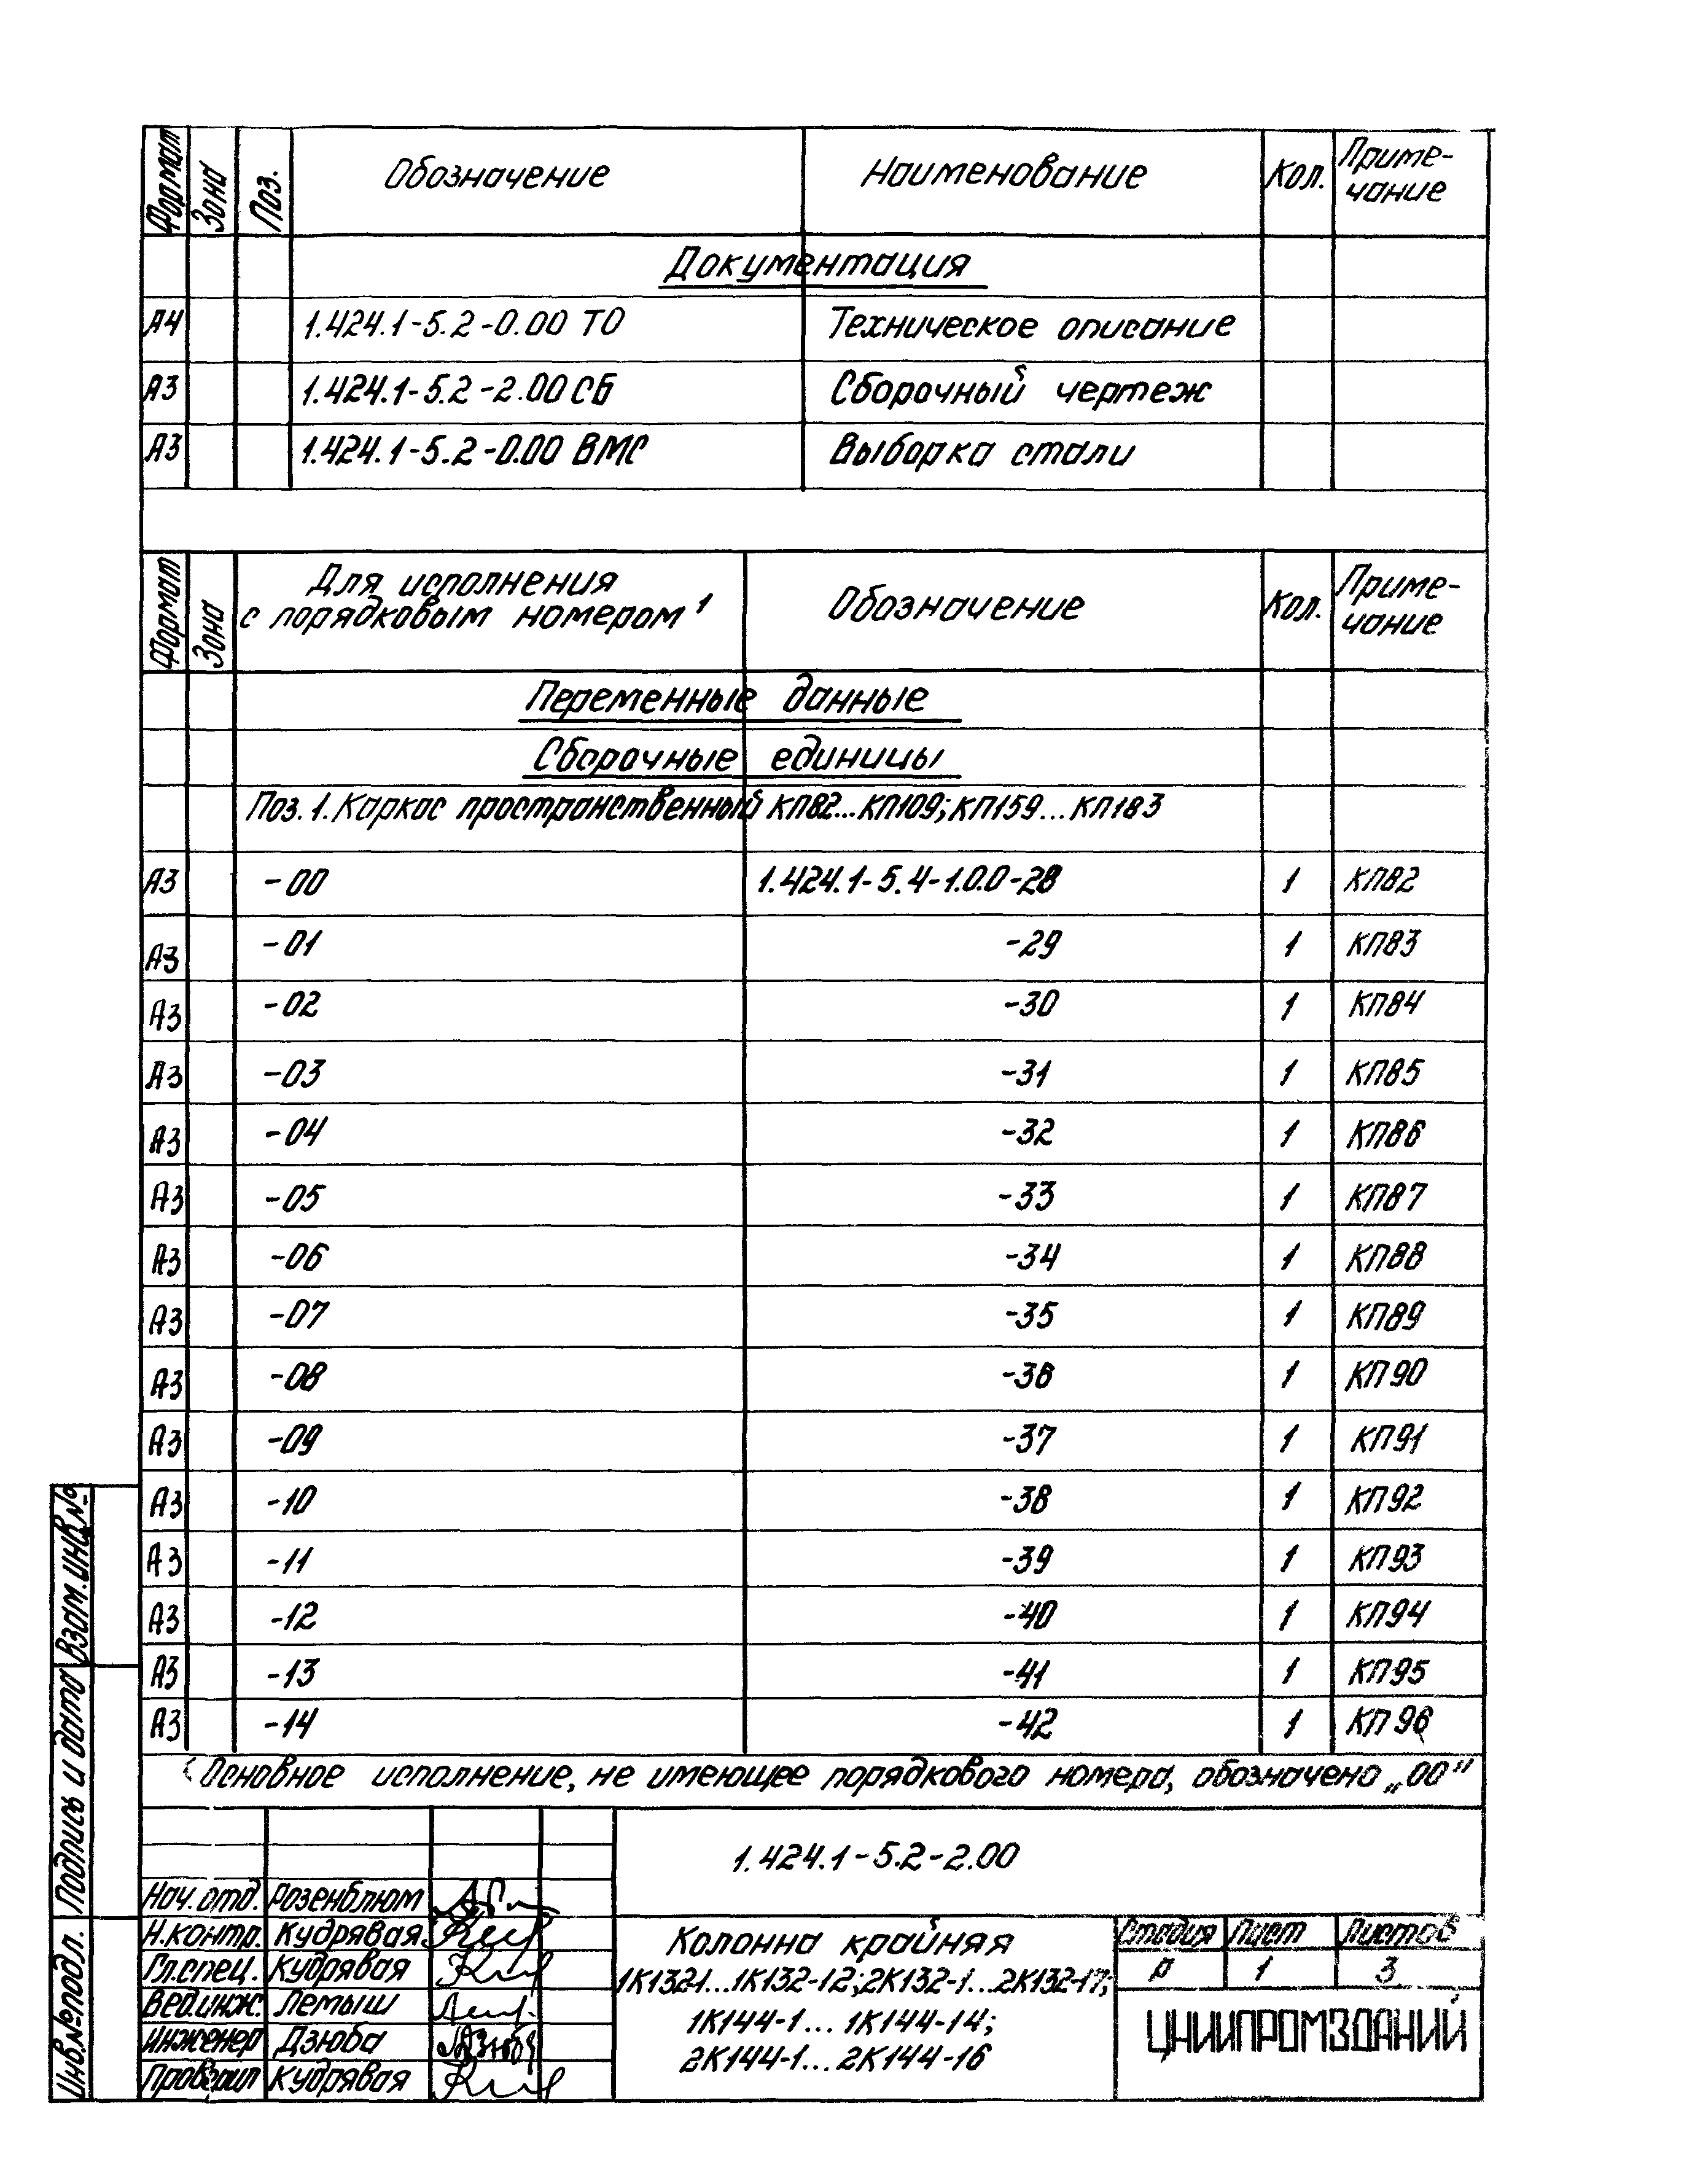 Формат Зона Поз. Обозначение Наименование Кол. Приме-
чание
Документация
А4 1.424.1-5.2-0.00 ТО Техническое описание
А3 1.424.1-5.2-2.00 СБ Сборочный чертеж
А3 1.424.1-5.2-0.00 ВМС Выборка стали
Формат Зона Для исполнения
с порядковым номером ¹ Обозначение Кол. Приме-
чание
Переменные данные
Сборочные единицы
Поз. 1. Каркас пространственный КП82...КП109; КП159...КП183
А3 -00 1.424.1-5.4-1.0.0-28 1 КП82
А3 -01 -29 1 КП83
А3 -02 -30 1 КП84
А3 -03 -31 1 КП85
А3 -04 -32 1 КП86
А3 -05 -33 1 КП87
А3 -06 -34 1 КП88
А3 -07 -35 1 КП89
А3 -08 -36 1 КП90
А3 -09 -37 1 КП91
А3 -10 -38 1 КП92
А3 -11 -39 1 КП93
А3 -12 -40 1 КП94
А3 -13 -41 1 КП95
А3 -14 -42 1 КП96
Основное исполнение, не имеющее порядкового номера, обозначено „00"
Взам. инв.№
Подпись и дата
Инв.№подл.
1.424.1-5.2-2.00
Нач. отд. Розенблюм
Н.контр. Кудрявая
Гл.спец. Кудрявая
Вед.инж. Лемыш
Инженер Дзюба
Проверил Кудрявая
Колонна крайняя
1К132-1...1К132-12; 2К132-1...2К132-17;
1К144-1...1К144-14;
2К144-1...2К144-16
Стадия Лист Листов
Р 1 3
ЦНИИПРОМЗДАНИЙ